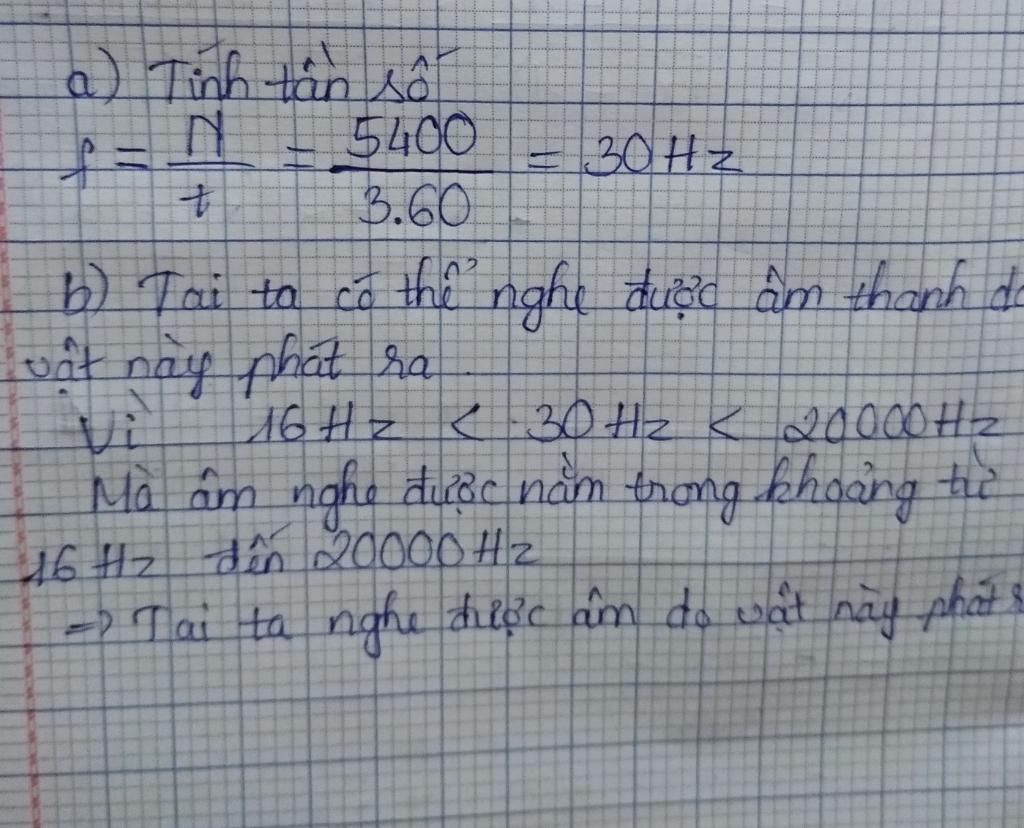 a) Tính tần số
f = N/t = 5400/3.60 = 30 Hz
b) Tai ta có thể nghe được âm thanh do
vật này phát ra.
Vì 16 Hz < 30 Hz < 20000 Hz
Mà âm nghe được nằm trong khoảng từ
16 Hz đến 20000 Hz
=> Tai ta nghe được âm do vật này phát